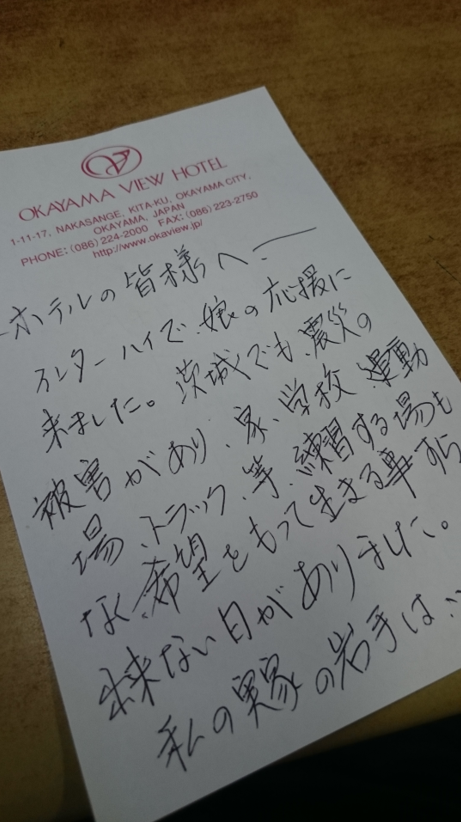 OKAYAMA VIEW HOTEL
1-11-17, NAKASANGE, KITA-KU, OKAYAMA CITY,
OKAYAMA, JAPAN
PHONE: (086) 224-2000 FAX: (086) 223-2750
http://www.okaview.jp/
ーホテルの皆様へーー
インターハイで、娘の応援に
来ました。茨城でも、震災の
被害があり、家、学校、運動
場、トラック、等、練習する場も
なく、希望をもって生きる事すら
出来ない日がありました。
私の実家の岩手は…